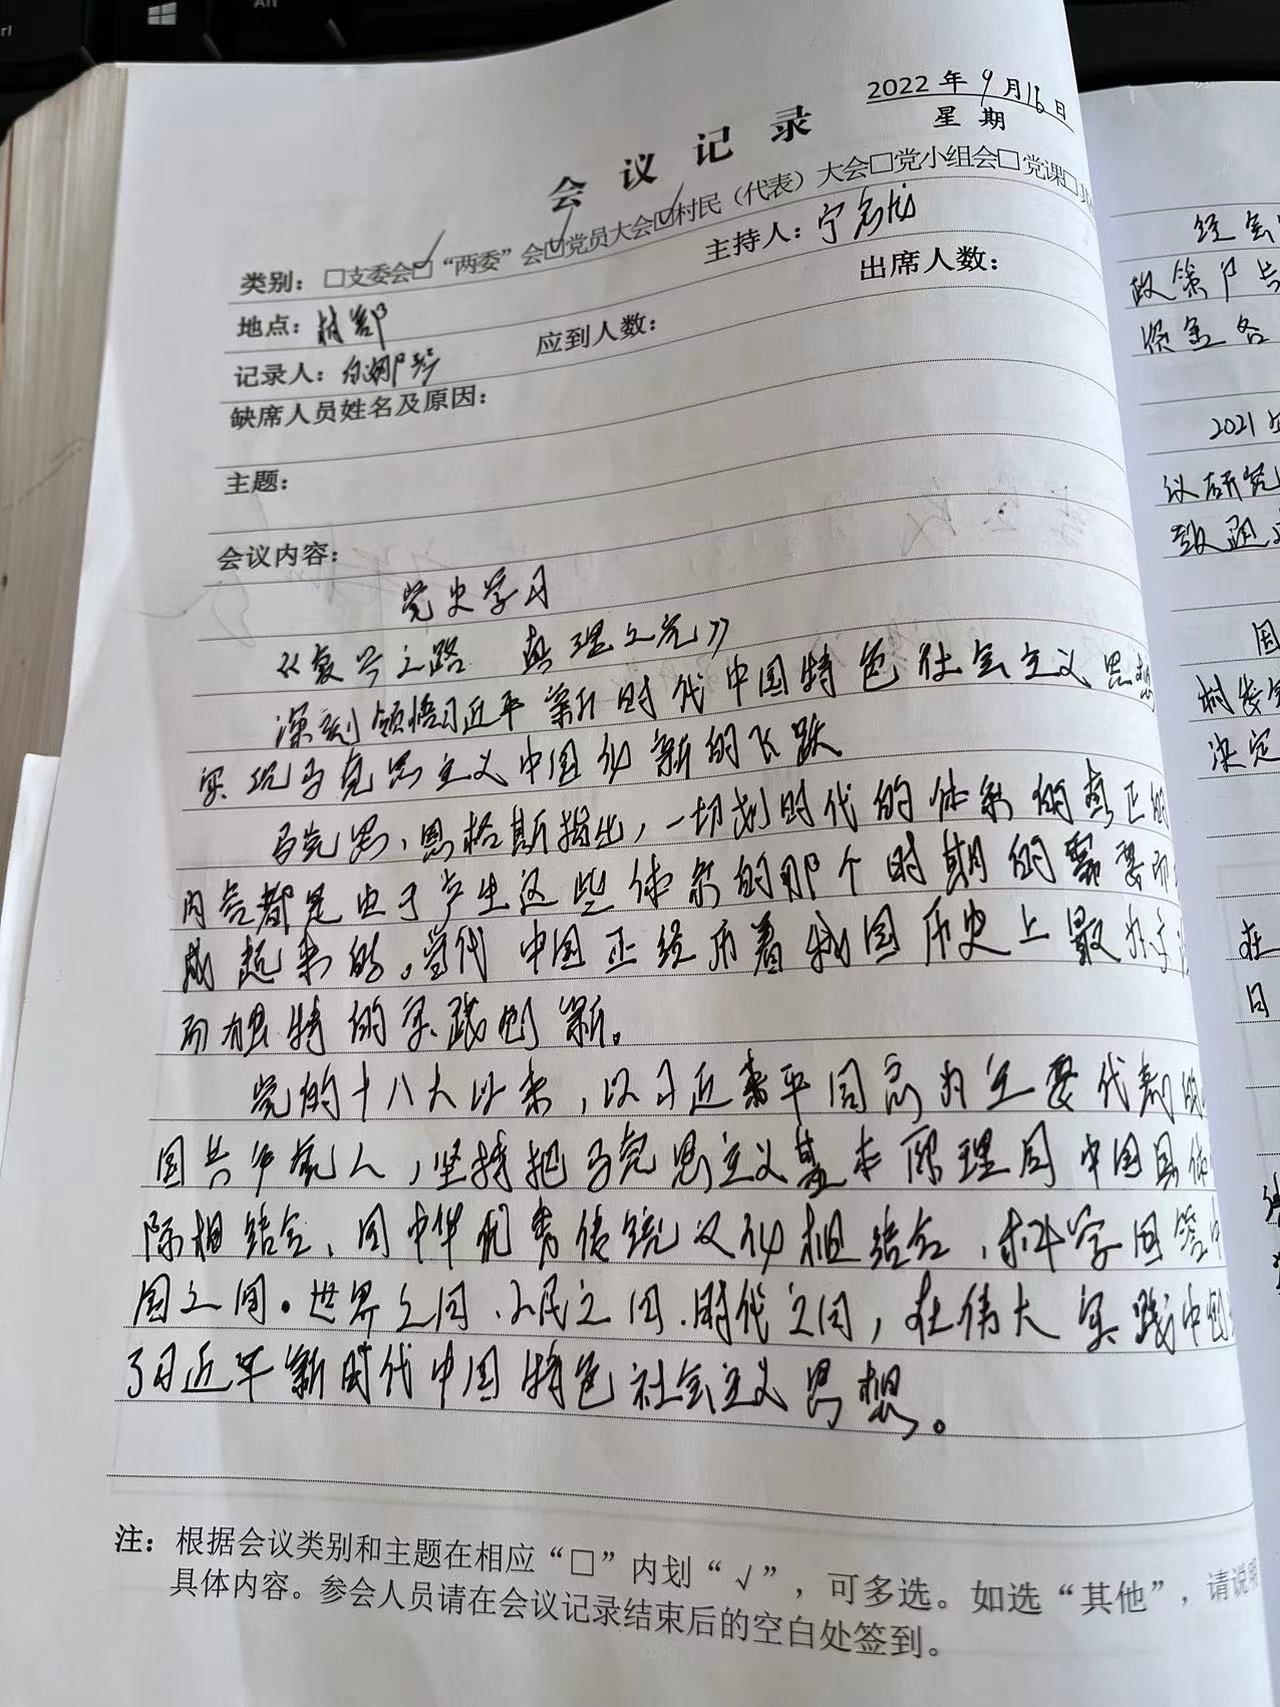 2022年9月16日
星期
会议记录
类别：□支委会☑“两委”会☑党员大会☑村民（代表）大会□党小组会□党课□其
地点：村部
主持人：宁
记录人：
应到人数：
出席人数：
缺席人员姓名及原因：
主题：
会议内容：
党史学习
《复兴之路 真理之光》
深刻领悟习近平新时代中国特色社会主义思想
实现马克思主义中国化新的飞跃
马克思、恩格斯指出，一切划时代的体系的真正的
内容都是由于产生这些体系的那个时期的需要而
成起来的。当代中国正经历着我国历史上最为
而独特的实践创新。
党的十八大以来，以习近平同志为主要代表的
国共产党人，坚持把马克思主义基本原理同中国具体
际相结合、同中华优秀传统文化相结合，科学回答中
国之问·世界之问、人民之问、时代之问，在伟大实践中创
了习近平新时代中国特色社会主义思想。
注：根据会议类别和主题在相应“□”内划“√”，可多选。如选“其他”，请说明
具体内容。参会人员请在会议记录结束后的空白处签到。
经会
政策户
资金各
2021年
议研究
致通
因
村委会
决定
在
日